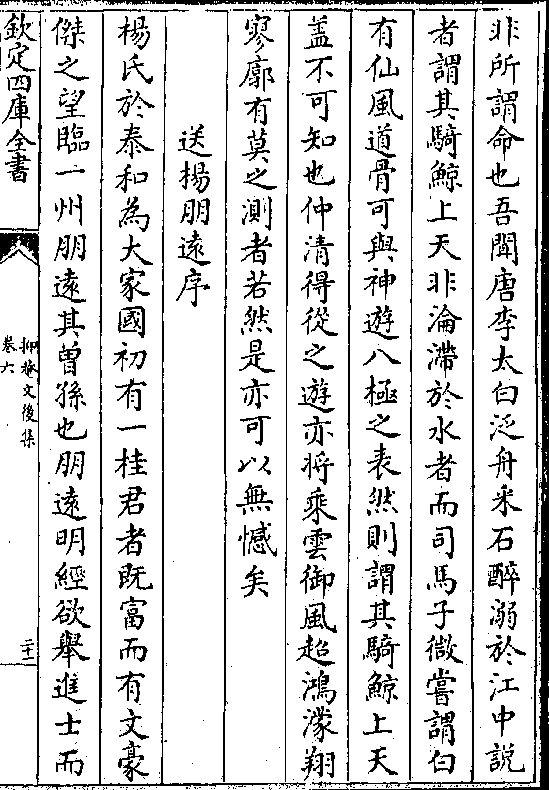 非所謂命也吾聞唐李太白泛舟采石醉溺於江中説
者謂其騎鯨上天非淪滯於水者而司馬子微嘗謂白
有仙風道骨可與神遊八極之表然則謂其騎鯨上天
盖不可知也仲清得從之遊亦將乘雲御風超鴻濛翔
寥廓有莫之測者若然是亦可以無憾矣
送楊朋遠序
楊氏於泰和為大家國初有一桂君者既富而有文豪
傑之望臨一州朋遠其曾孫也朋遠明經欲舉進士而
欽定四庫全書
抑菴文後集
卷六
二十二